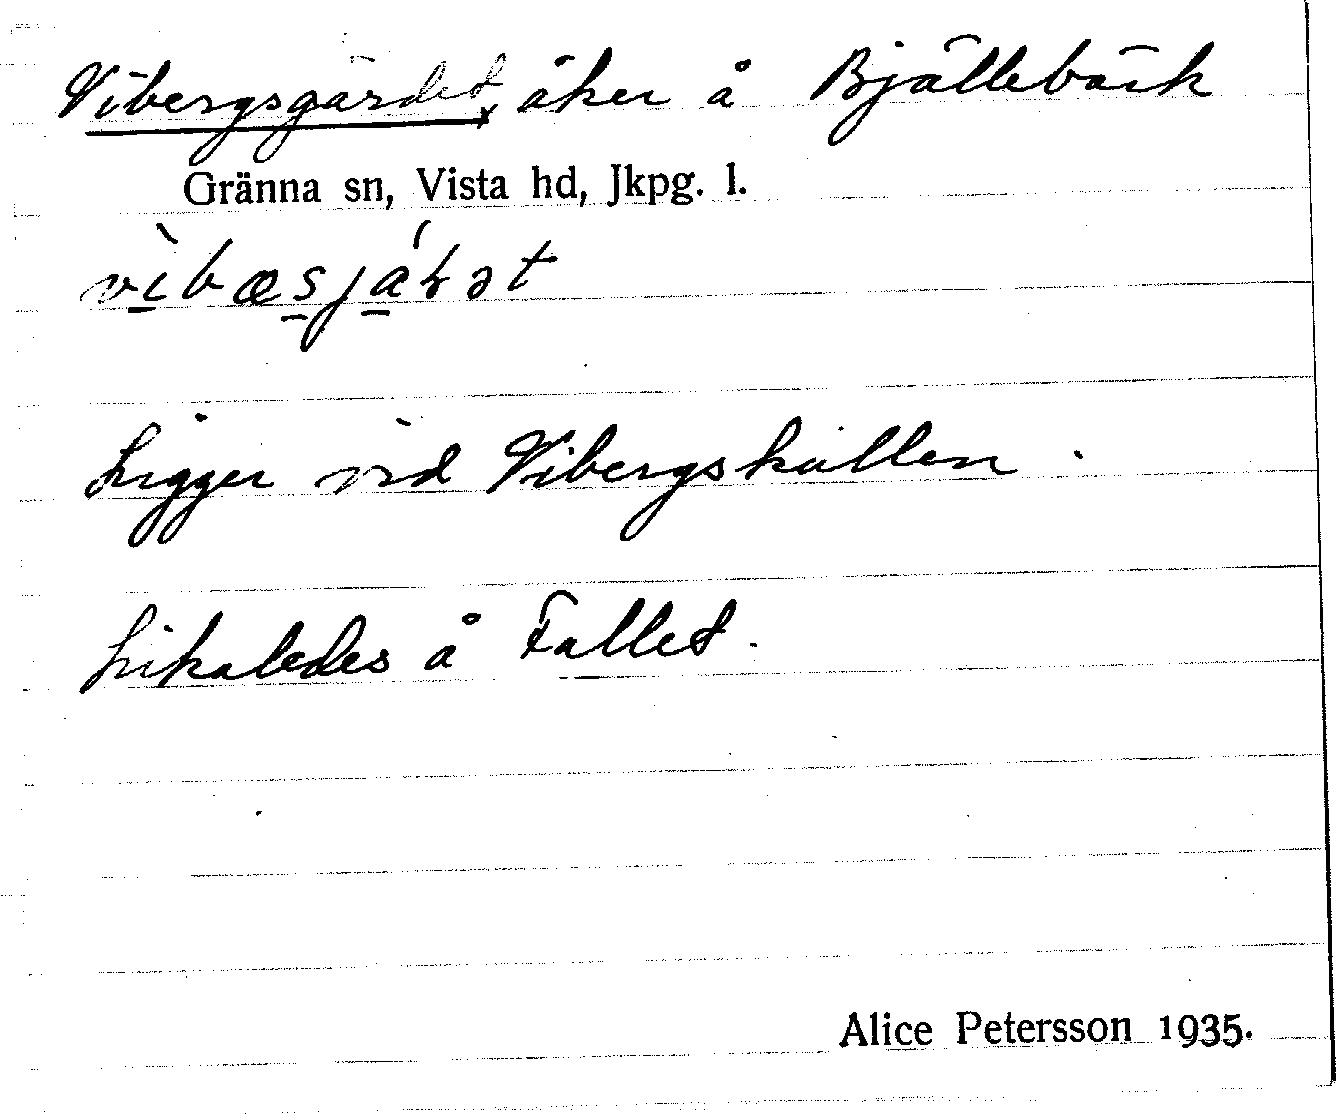 Vibergsgärdet, åker å Bjällebäck
Gränna sn, Vista hd, Jkpg. l.
Ligger vid Vibergskällan.
Likaledes å Fallet.
Alice Petersson 1935.